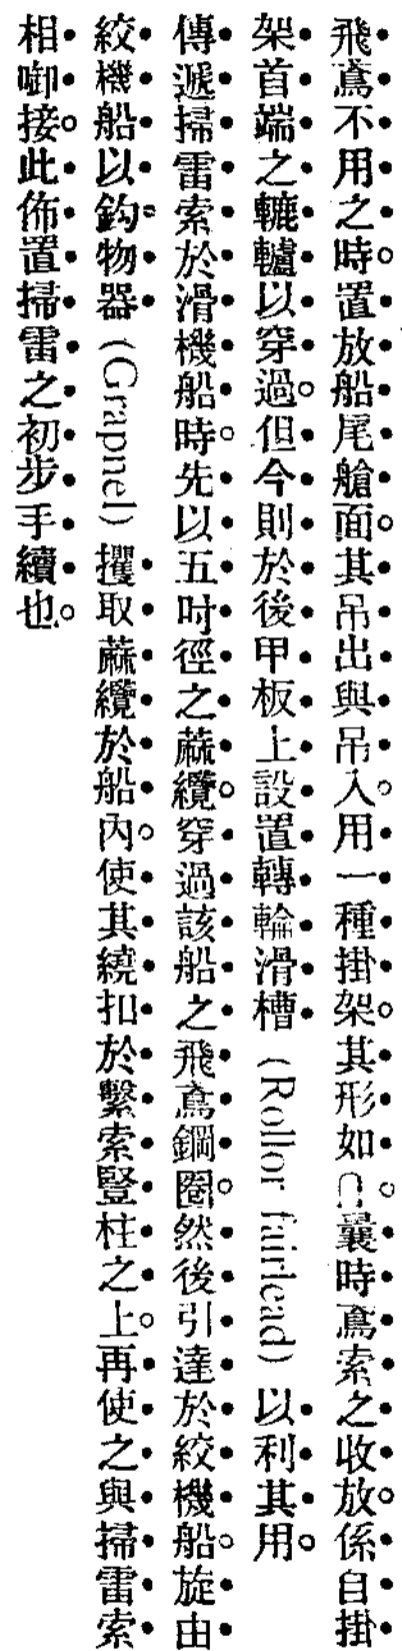 飛鳶不用之時。置放船尾艙面。其吊出與吊入。用一種掛架。其形如∩。曩時鳶索之收放。係自掛
架首端之轆轤以穿過。但今則於後甲板上設置轉輪滑槽(Rollor fairlead)以利其用。
傳遞掃雷索於滑機船時。先以五吋徑之蔴纜。穿過該船之飛鳶鋼圈。然後引達於絞機船。旋由
絞機船以鈎物器(Grapnel)攫取蔴纜於船內。使其繞扣於繫索豎柱之上。再使之與掃雷索
相啣接。此佈置掃雷之初步手續也。